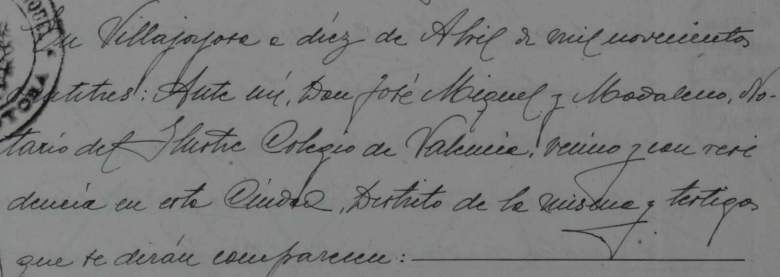 En Villajoyosa a diez de Abril de mil novecientos
veintitres: Ante mí, Don José Miguel y Madaleno, No-
tario del Ilustre Colegio de Valencia, vecino y con resi
dencia en esta Ciudad, Distrito de la misma y testigos
que se dirán comparecen: